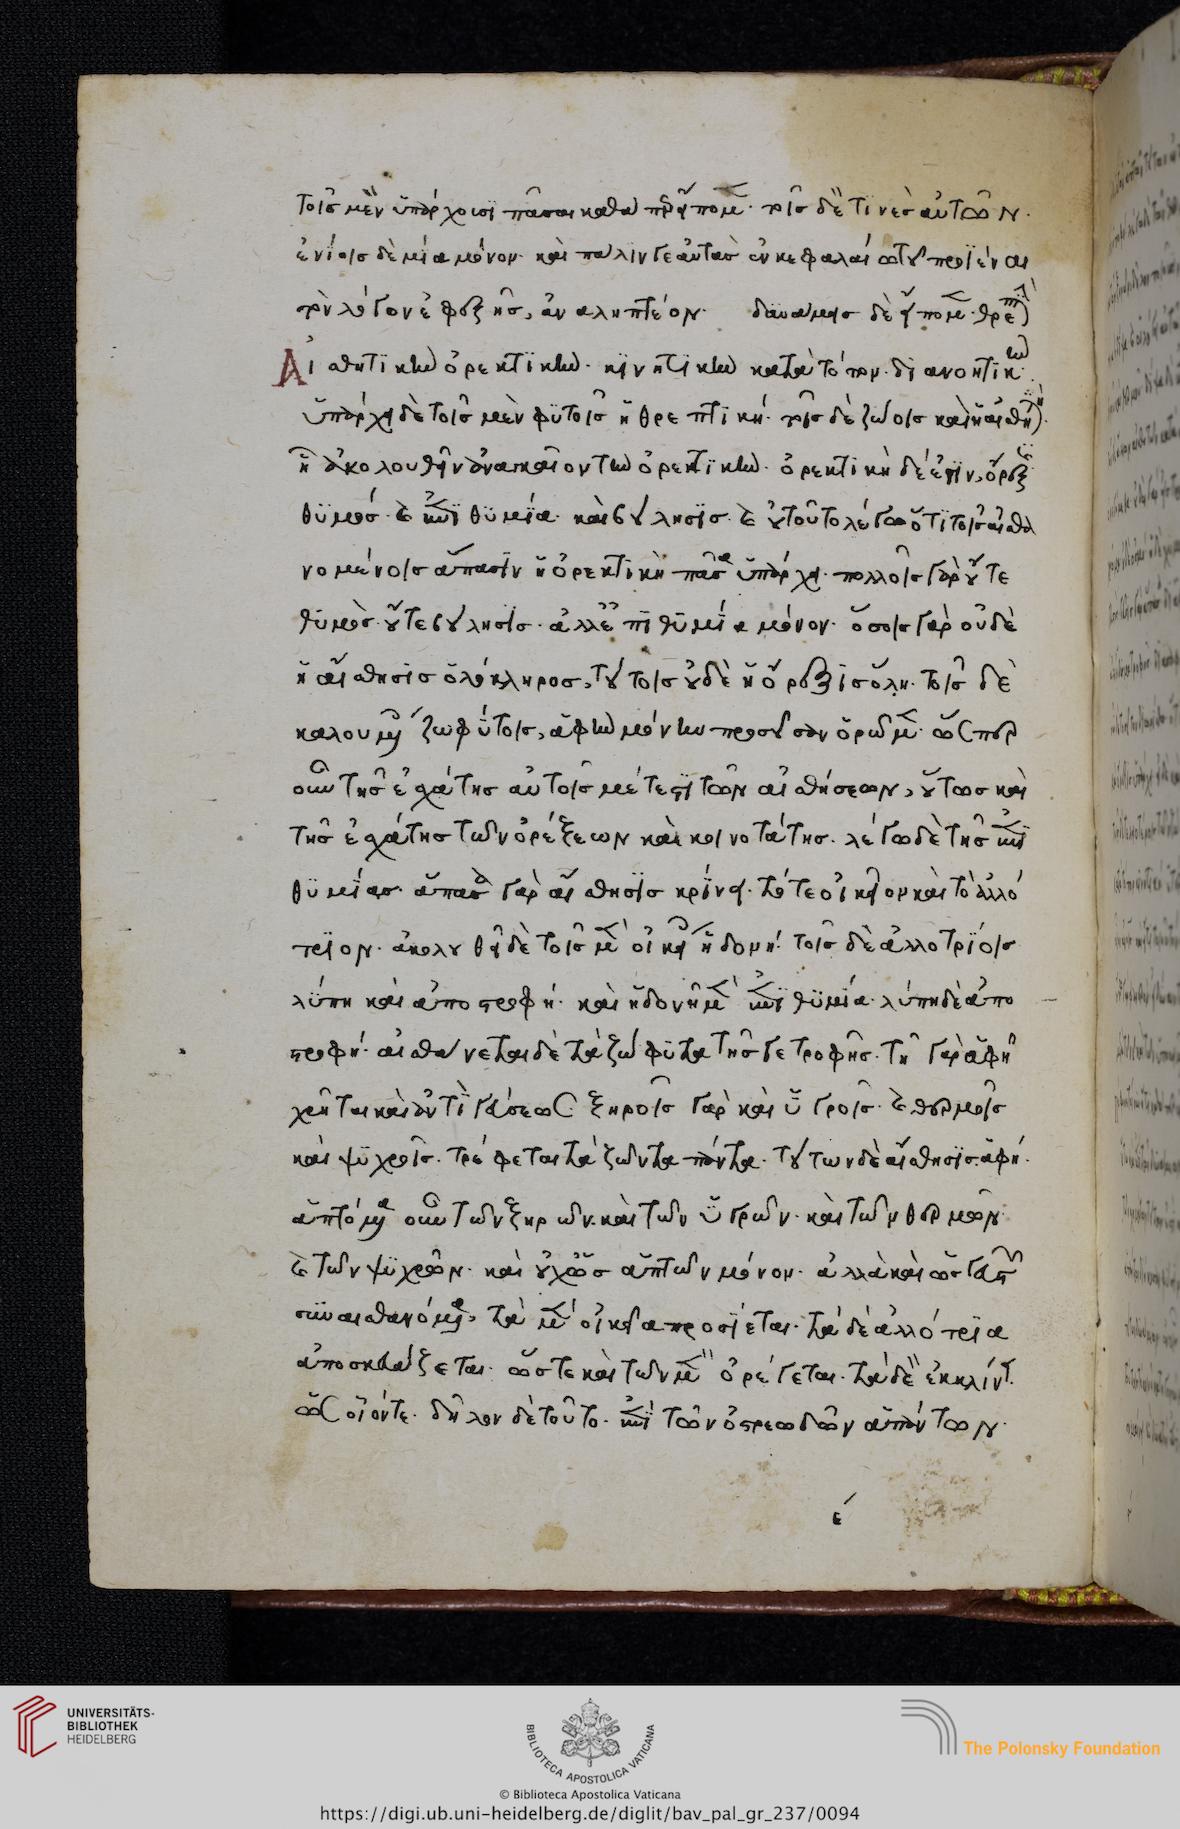 τοῖσ μὲν ὑπάρχουσϊ πᾶσαι καθά πῤ εἴπομ̅. τοῖσ δὲ τϊνὲσ αὐτῶν.
ἐνίοισ δὲ μία μόνον. καὶ πάλϊν γε αὐτὰσ ἐν κεφαλαίω τοῦ προϊέναι
τὸν λόγον ἐφεξῆσ, ἀναληπτέον. δϋνάμεισ δὲ εἴπομ̅. θρε
Αἰσθητϊκὴν ὀρεκτϊκὴν. κϊνητϊκὴν κατὰ τόπον. δϊανοητϊκὴν.
ὑπάρχει δὲ τοῖσ μὲν φϋτοῖσ ἡ θρεπτϊκή. τοῖσ δὲ ζώοισ καὶ ἡ αἰσθη.
ἧ ἀκολουθεῖν ἀναγκαῖον τὴν ὀρεκτϊκὴν. ὀρεκτϊκὴ δέ ἐστϊν, ὄρεξϊσ
θϋμόσ. καὶ ἐπϊθϋμία. καὶ βούλησϊσ. καὶ οὐ τοῦτο λέγω ὅτϊ τοῖσ αἰσθα
νομένοισ ἅπασϊν ἡ ὀρεκτϊκὴ πᾶσα ὑπάρχει. πολλοῖσ γὰρ οὔτε
θϋμὸσ. οὔτε βούλησϊσ. ἀλλ' ἐπϊθϋμία μόνον. ὅσοισ γὰρ οὐδὲ
ἡ αἴσθησϊσ ὁλόκληροσ, τούτοισ οὐδὲ ἡ ὄρεξϊσ ὅλη. τοῖσ δὲ
καλουμένοισ ζωοφύτοισ, ἁφὴν μόνην προσοῦσαν ὁρῶμεν. ὥσπερ
οὖν τῆσ ἐσχάτησ αὐτοῖσ μέτεστϊ τῶν αἰσθήσεων, οὕτωσ καὶ
τῆσ ἐσχάτησ τῶν ὀρέξεων καὶ κοινοτάτησ. λέγω δὲ τῆσ ἐπϊ
θϋμίασ. ἅπασα γὰρ αἴσθησϊσ κρίνει. τό τε οἰκεῖον καὶ τὸ ἀλλό
τρϊον. ἀκολουθεῖ δὲ τοῖσ μὲν οἰκείοισ ἡδονή. τοῖσ δὲ ἀλλοτρίοισ
λύπη καὶ ἀποστροφή. καὶ ἡδονῆ μὲν ἐπϊθϋμία. λύπη δὲ ἀπο
στροφή. αἰσθάνεται δὲ τὰ ζωόφϋτα τῆσ γε τροφῆσ. τῆ γὰρ ἁφῆ
χρῆται καὶ ἀντὶ γεύσεωσ ξηροῖσ γὰρ καὶ ὑγροῖσ. καὶ θερμοῖσ
καὶ ψϋχροῖσ. τρέφεται τὰ ζῶντα πάντα. τούτων δὲ αἴσθησϊσ ἁφή.
ἁπτόμενα οὖν τῶν ξηρῶν. καὶ τῶν ὑγρῶν. καὶ τῶν θερμῶν
καὶ τῶν ψϋχρῶν. καὶ οὐχ ὡσ ἁπτῶν μόνον. ἀλλὰ καὶ ὡσ γευστῶν
σϋναισθανόμενα, τὰ μὲν οἰκεῖα προσίεται. τὰ δὲ ἀλλότρϊα
ἀποσκευάζεται. ὥστε καὶ τῶν μὲν ὀρέγεται. τὰ δὲ ἐκκλίνει.
ὡσ οἷόν τε. δῆλον δὲ τοῦτο. ἐπὶ τῶν ὀστρεωδῶν ἁπάντων.
ε΄
UNIVERSITÄTS-
BIBLIOTHEK
HEIDELBERG
BIBLIOTECA APOSTOLICA VATICANA
The Polonsky Foundation
© Biblioteca Apostolica Vaticana
https://digi.ub.uni-heidelberg.de/diglit/bav_pal_gr_237/0094